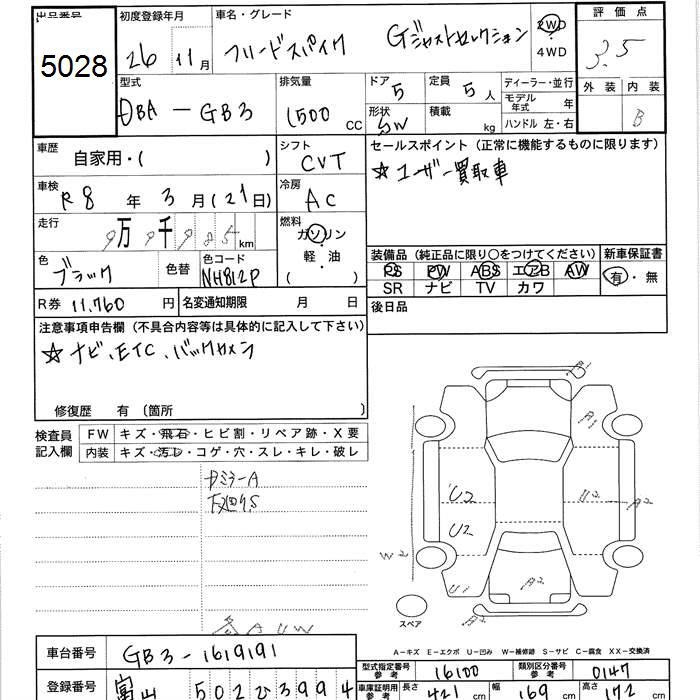 出品番号 初度登録年月 車名・グレード 評価点
5028 26 11月 フリードスパイク Gジャストセレクション 2WD・4WD 3.5
型式 排気量 ドア 5 定員 5人 ディーラー・並行 外装 内装
DBA-GB3 1500 CC 形状 SW 積載 kg モデル年式 年 B
ハンドル 左・右
車歴 自家用・( ) シフト CVT セールスポイント (正常に機能するものに限ります)
☆ユーザー買取車
車検 R8 年 3月(21日) 冷房 AC
走行 9万9千985km 燃料 ガソリン・軽油・( )
色 ブラック 色替 色コード NH812P
装備品 (純正品に限り○をつけてください) 新車保証書
PS PW ABS エアB AW 有・無
SR ナビ TV カワ
R券 11,760円 名変通知期限 月 日 後日品
注意事項申告欄 (不具合内容等は具体的に記入して下さい)
☆ナビ、ETC、バックカメラ
修復歴 有 (箇所 )
検査員記入欄 FW キズ・飛石・ヒビ割・リペア跡・X要
内装 キズ・汚レ・コゲ・穴・スレ・キレ・破レ
A1
A1
U2 U2 A2
U2
W2
U1 A2
スペア
AUW
A-キズ E-エクボ U-凹み W-補修跡 S-サビ C-腐食 XX-交換済
車台番号 GB3-1619191 型式指定番号 参考 16100 類別区分番号 参考 0147
登録番号 富山 502 ひ 3994 車庫証明用 参考 長さ 421 cm 幅 169 cm 高さ 172 cm